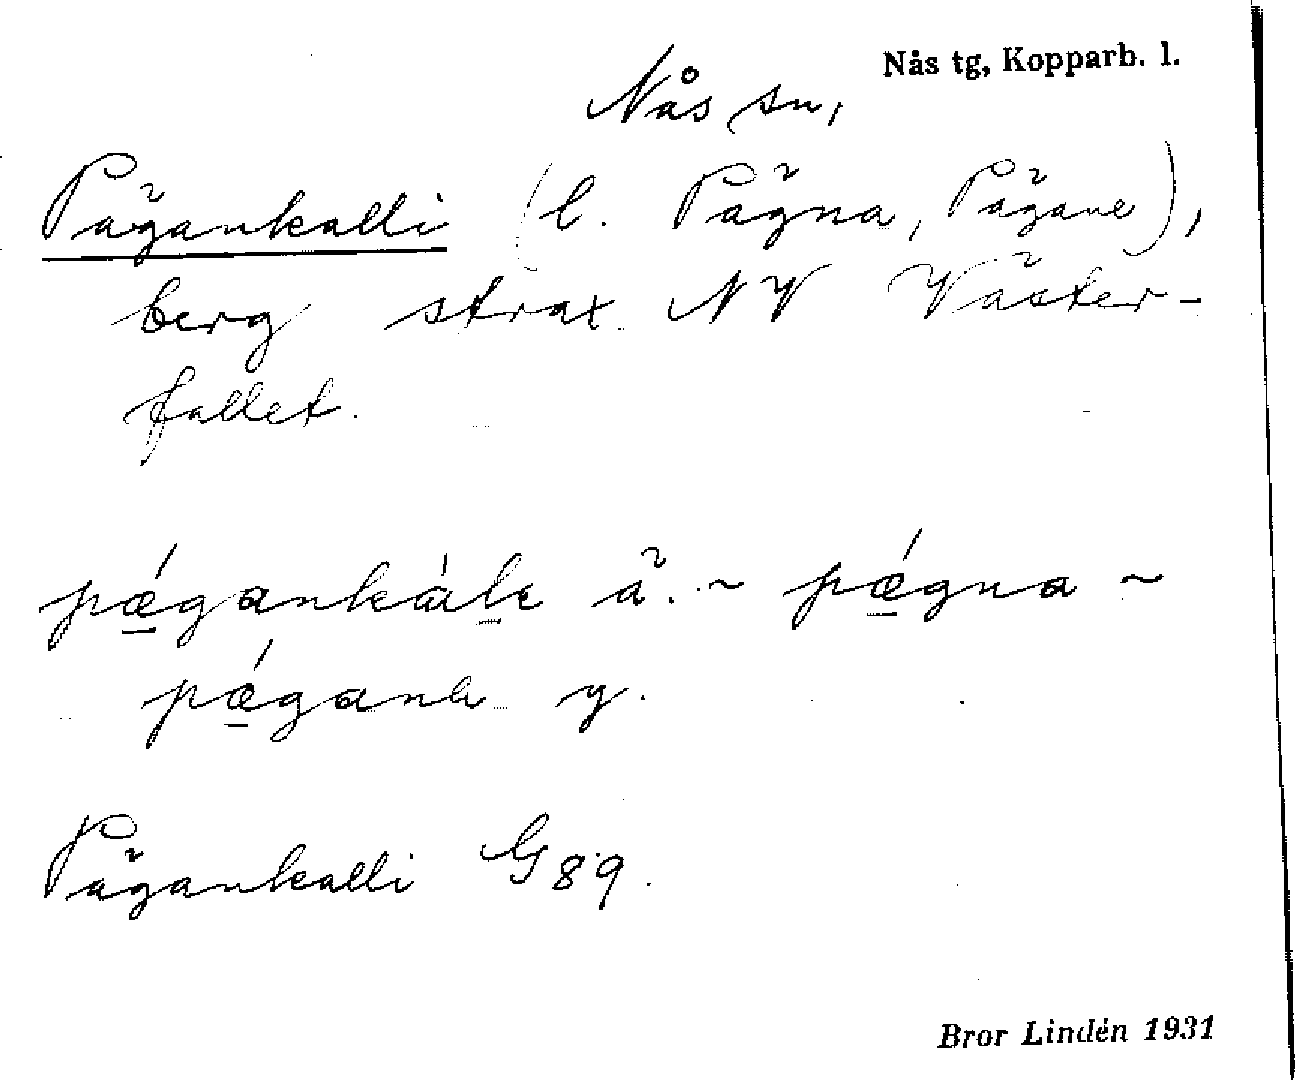 Nås tg, Kopparb. l.
Nås sn,
Pägankalli (l. Pägna, Pägane),
berg strax NV Väster-
fallet.
pǽgankàlı ä. ~ pǽgna ~
pǽganə y.
Pägankalli G 89.
Bror Lindén 1931